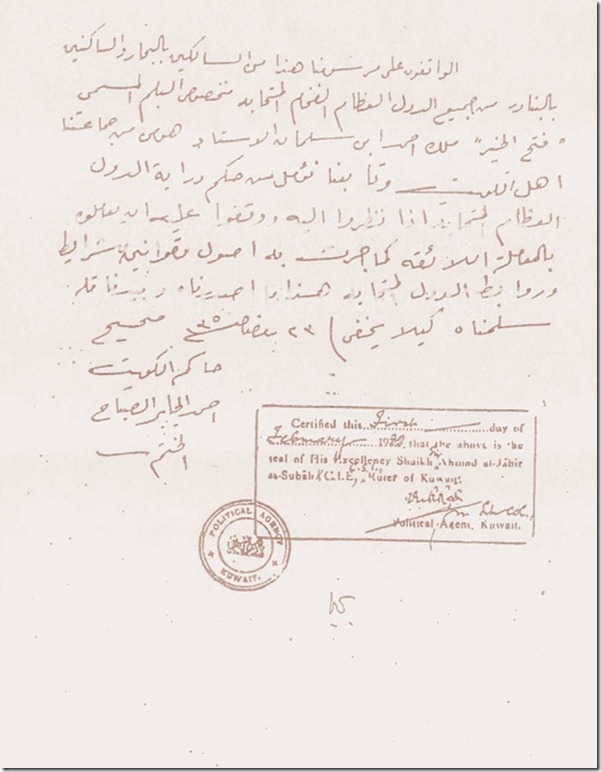 الواقفون على مرسومنا هذا من السالكين بالبحار والساكنين
بالبنادر من جميع الدول العظام الفخام المتحابه بخصوص البلم المسمى
"فتح الخير" ملك احمد ابن سلمان الاستاد هو من جماعتنا
اهل الكويت وتابعنا نؤمل من حكم دراية الدول
العظام المتحابه اذا نظروا اليه ووقفوا عليه ان يعاملوه
بالمعاملة اللائقه كما جرت به اصول وقوانين شرايط
وروابط الدول المتحابه هذا ما اصدرناه وبيد ناقله
سلمناه كيلا يخفى ٢٣ رمضان صحيح
حاكم الكويت
احمد الجابر الصباح
الختم
Certified this First day of
February 19 that the above is the
seal of His Excellency Shaikh Sir Ahmad al-Jabir
as-Subah (C.I.E, C.S.I., Ruler of Kuwait.
Political Agent, Kuwait.
POLITICAL AGENCY
KUWAIT.